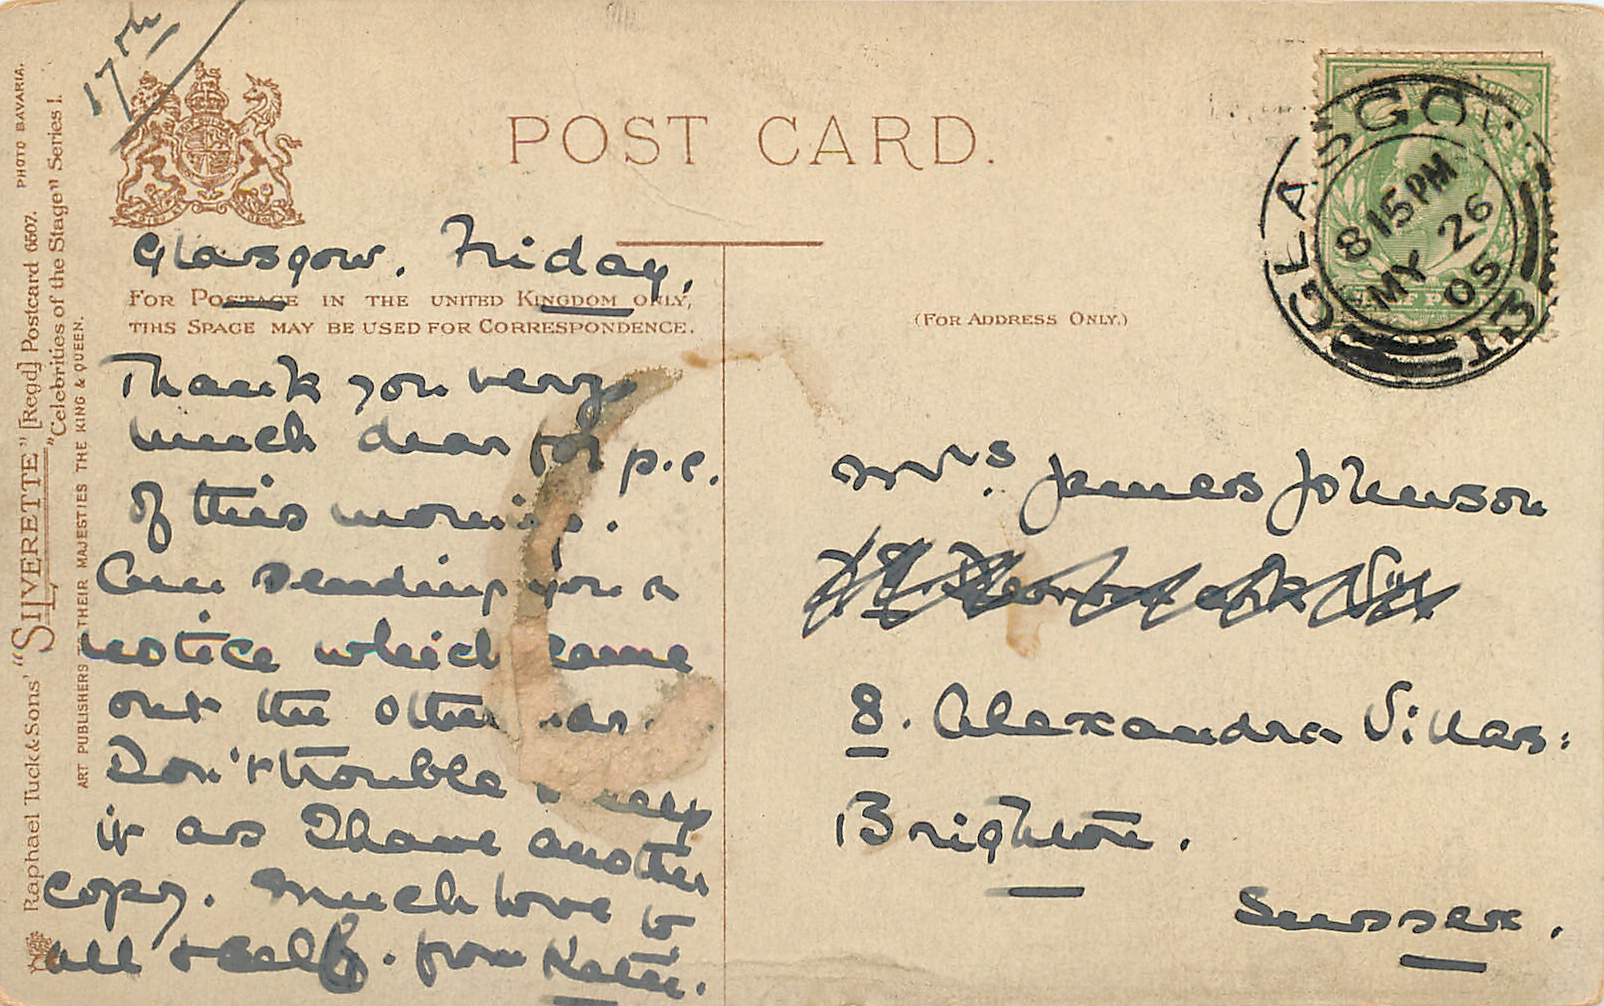 17th
POST CARD.
Glasgow. Friday.
FOR POSTAGE IN THE UNITED KINGDOM ONLY,
THIS SPACE MAY BE USED FOR CORRESPONDENCE.
Thank you very
much dear for p.c.
of this morning.
Am sending you a
notice which came
out the other day.
Don't trouble to keep
it as I have another
copy. Much love to
all & self. from Katie.
(FOR ADDRESS ONLY.)
Mrs. James Johnson
8. Alexandra Villas:
Brighton.
Sussex.
GLASGOW
8 15 PM
MY 26
05
Raphael Tuck & Sons' "SILVERETTE" [Regd] Postcard 6507.
"Celebrities of the Stage" Series I.
ART PUBLISHERS TO THEIR MAJESTIES THE KING & QUEEN.
PHOTO BAVARIA.